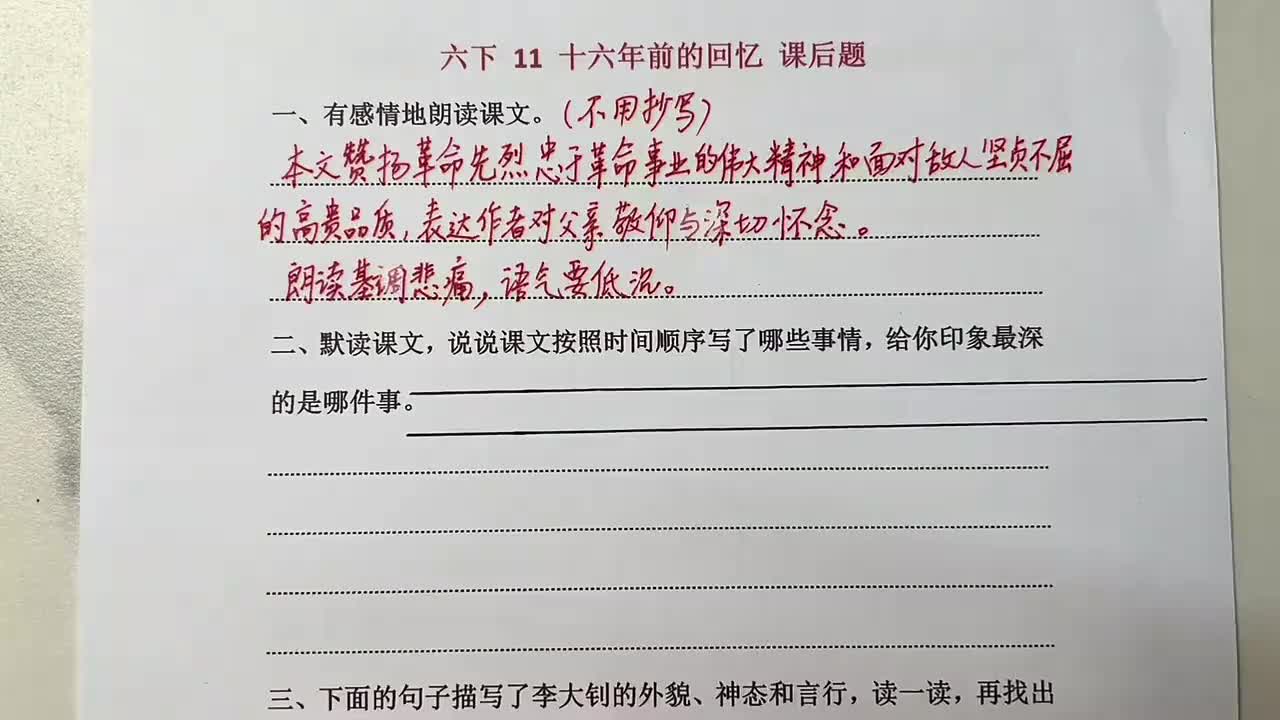 六下 11 十六年前的回忆 课后题
一、有感情地朗读课文。(不用抄写)
本文赞扬革命先烈忠于革命事业的伟大精神和面对敌人坚贞不屈
的高贵品质,表达作者对父亲敬仰与深切怀念。
朗读基调悲痛,语气要低沉。
二、默读课文，说说课文按照时间顺序写了哪些事情，给你印象最深
的是哪件事。
三、下面的句子描写了李大钊的外貌、神态和言行，读一读，再找出